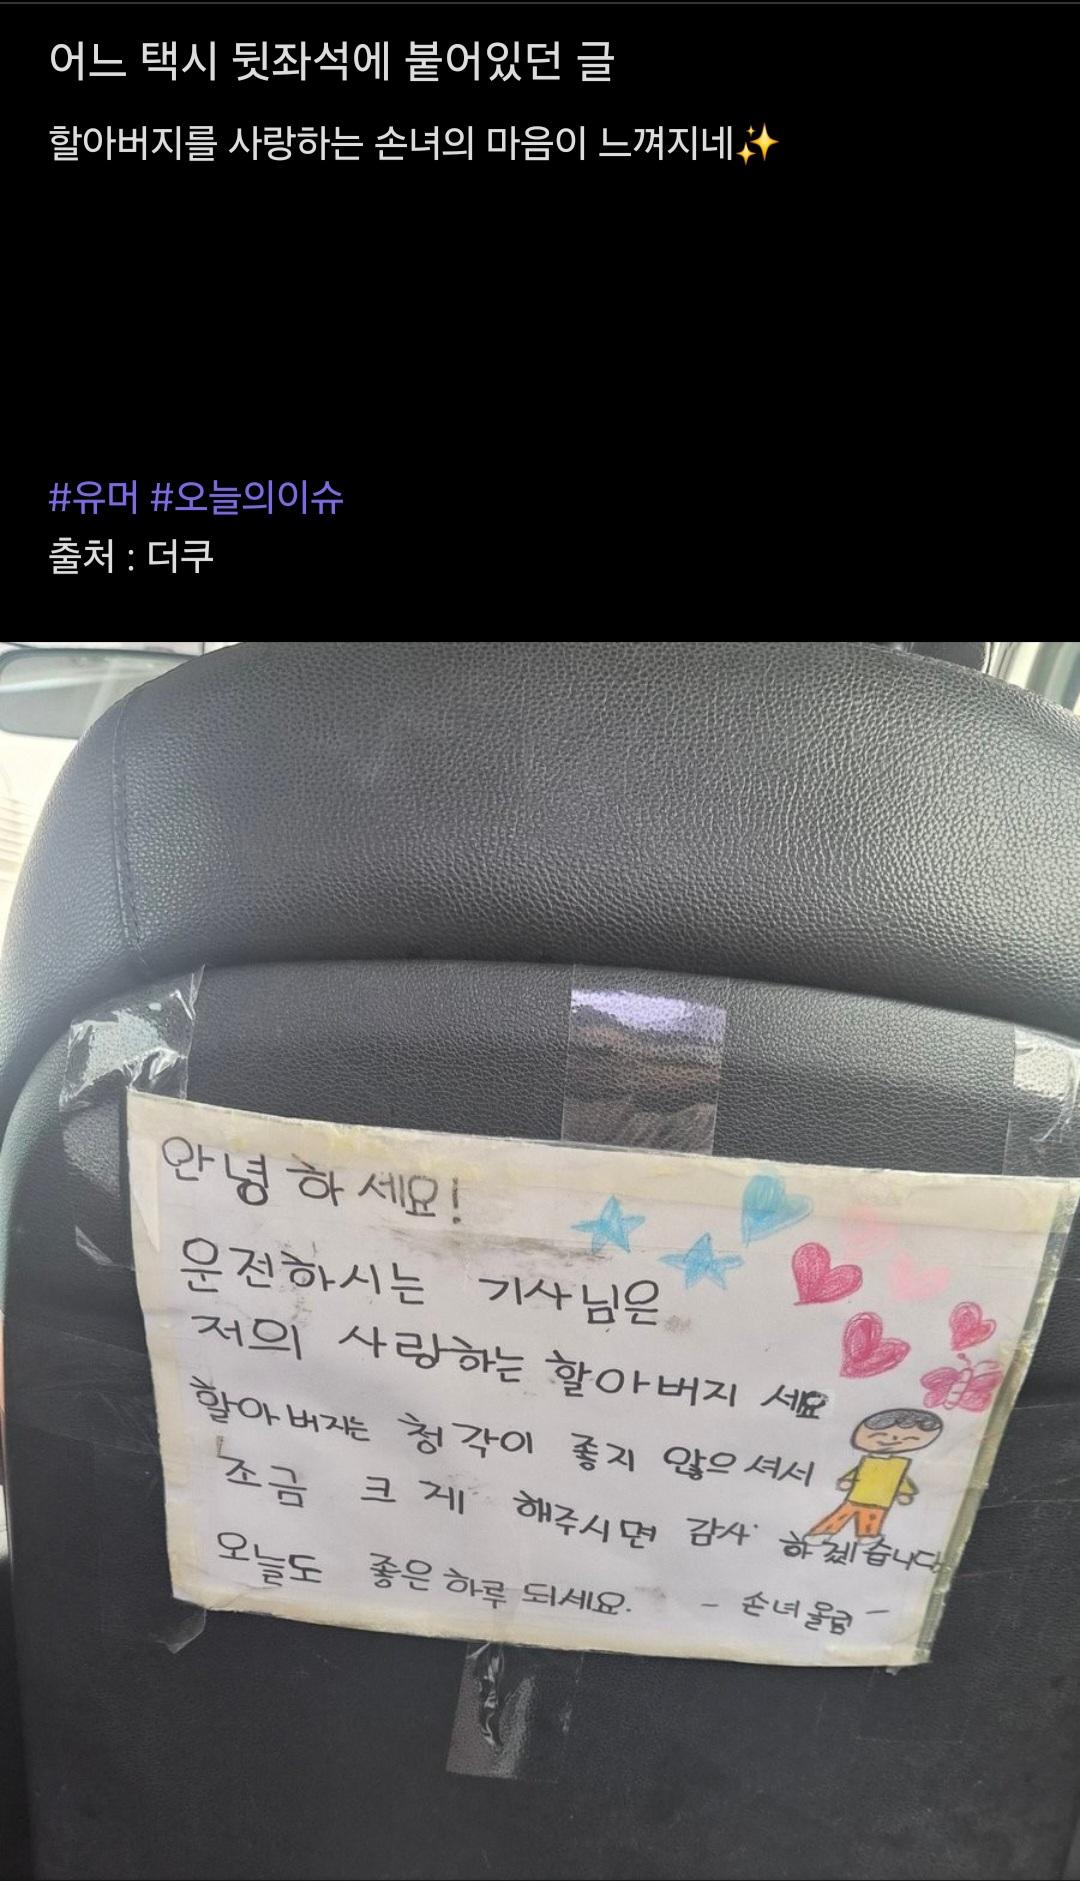 어느 택시 뒷좌석에 붙어있던 글
할아버지를 사랑하는 손녀의 마음이 느껴지네✨
#유머 #오늘의이슈
출처 : 더쿠
안녕하세요!
운전하시는 기사님은
저의 사랑하는 할아버지 세요
할아버지는 청각이 좋지 않으셔서
조금 크게 해주시면 감사하겠습니다
오늘도 좋은하루 되세요. - 손녀올림 -